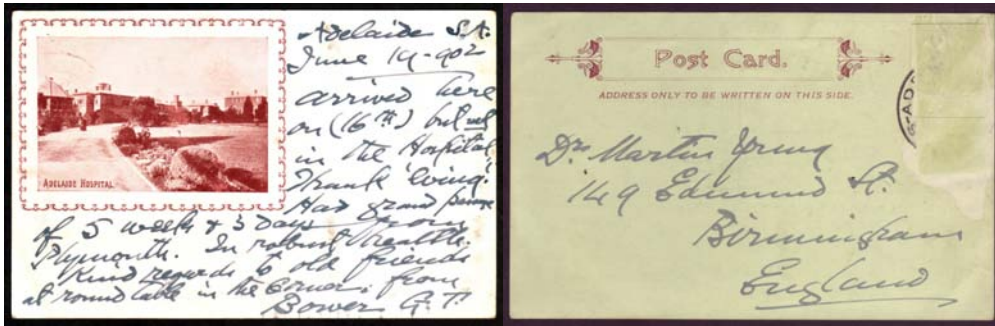 Adelaide S.A.
June 19-902
arrived here
on (16th) but not
in the Hospital,
Thank 'eving.'
Had grand passage
of 5 weeks & 3 days from
Plymouth. In robust health.
Kind regards to old friends
at round table in the corner, from
Bower G.T.
ADELAIDE HOSPITAL
Post Card.
ADDRESS ONLY TO BE WRITTEN ON THIS SIDE.
Dr. Martin Young
149 Edmund St.
Birmingham
England